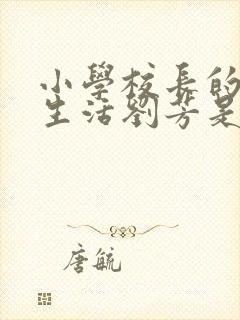 小學校長的
生活劉芳是
唐毓